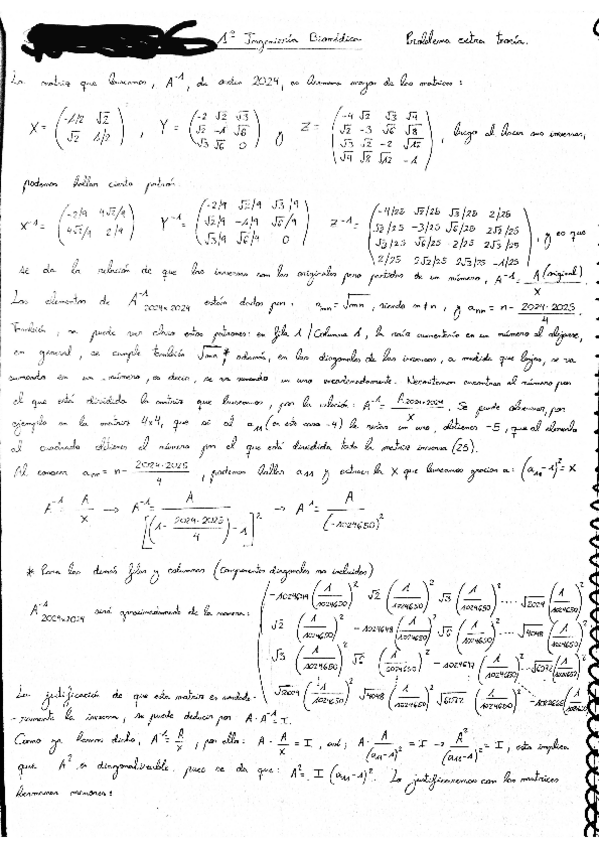 1º Ingeniería Biomédica Problema extra teoría.
La matriz que buscamos, A⁻¹, de orden 2024, es hermana mayor de las matrices:
X = (-1/2 √2 / √2 1/2), Y = (-2 √2 √3 / √2 -1 √6 / √3 √6 0) y Z = (-4 √2 √3 √4 / √2 -3 √6 √8 / √3 √6 -2 √12 / √4 √8 √12 -1), luego al hacer sus inversas,
podemos hallar cierto patrón.
X⁻¹ = (-2/9 4√2/9 / 4√2/9 2/9) Y⁻¹ = (-2/9 √2/9 √3/9 / √2/9 -1/9 √6/9 / √3/9 √6/9 0) Z⁻¹ = (-4/25 √2/25 √3/25 2/25 / √2/25 -3/25 √6/25 2√2/25 / √3/25 √6/25 -2/25 2√3/25 / 2/25 2√2/25 2√3/25 -1/25), y es que
se da la relación de que las inversas son las originales pero partidas de un número, A⁻¹ = A(original)/x.
Los elementos de A⁻¹ 2024×2024 están dados por: aₘₙ = √mn, siendo m≠n, y aₙₙ = n - 2024·2025/4.
También, se puede ver cierto estos patrones: en fila 1/Columna 1, la raíz aumentaría en un número al alejarse,
en general, se cumple también √mn*, además, en las diagonales de las inversas, a medida que bajas, se va
sumando en un número, es decir, se va sumando un uno recurrentemente. Necesitamos encontrar el número por
el que está dividida la matriz que buscamos, por la relación: A⁻¹ = A 2024×2024/x. Se puede observar, por
ejemplo en la matriz 4x4, que si al a₁₁ (en este caso -4) le restas un uno, obtienes -5, que al elevarlo
al cuadrado obtienes el número por el que está dividida toda la matriz inversa (25).
Al conocer aₙₙ = n - 2024·2025/4, podemos hallar a₁₁ y extraer la X que buscamos gracias a: (a₁₁-1)² = x
A⁻¹ = A/x → A⁻¹ = A/[(1 - 2024·2025/4) - 1]² → A⁻¹ = A/(-1024650)²
* Para las demás filas y columnas (componentes diagonales no incluidas)
A⁻¹ 2024×2024 será aproximadamente de la manera: (-1024649 (1/1024650)² √2 (1/1024650)² √3 (1/1024650)² .... √2024 (1/1024650)²
√2 (1/1024650)² -1024648 (1/1024650)² √6 (1/1024650)² .... √4048 (1/1024650)²
√3 (1/1024650)² √6 (1/1024650)² -1024647 (1/1024650)² .... √6072 (1/1024650)²
√2024 (1/1024650)² √4048 (1/1024650)² √6072 (1/1024650)²
La justificación de que esta matriz es verdade-
-ramente la inversa, se puede deducir por A·A⁻¹ = I.
Como ya hemos dicho, A⁻¹ = A/x, por ello: A · A/x = I, así; A · A/(a₁₁-1)² = I → A²/(a₁₁-1)² = I, esto implica
que A² es diagonalizable. pues se da que: A² = I (a₁₁-1)². Lo justificaremos con las matrices
hermanas menores: